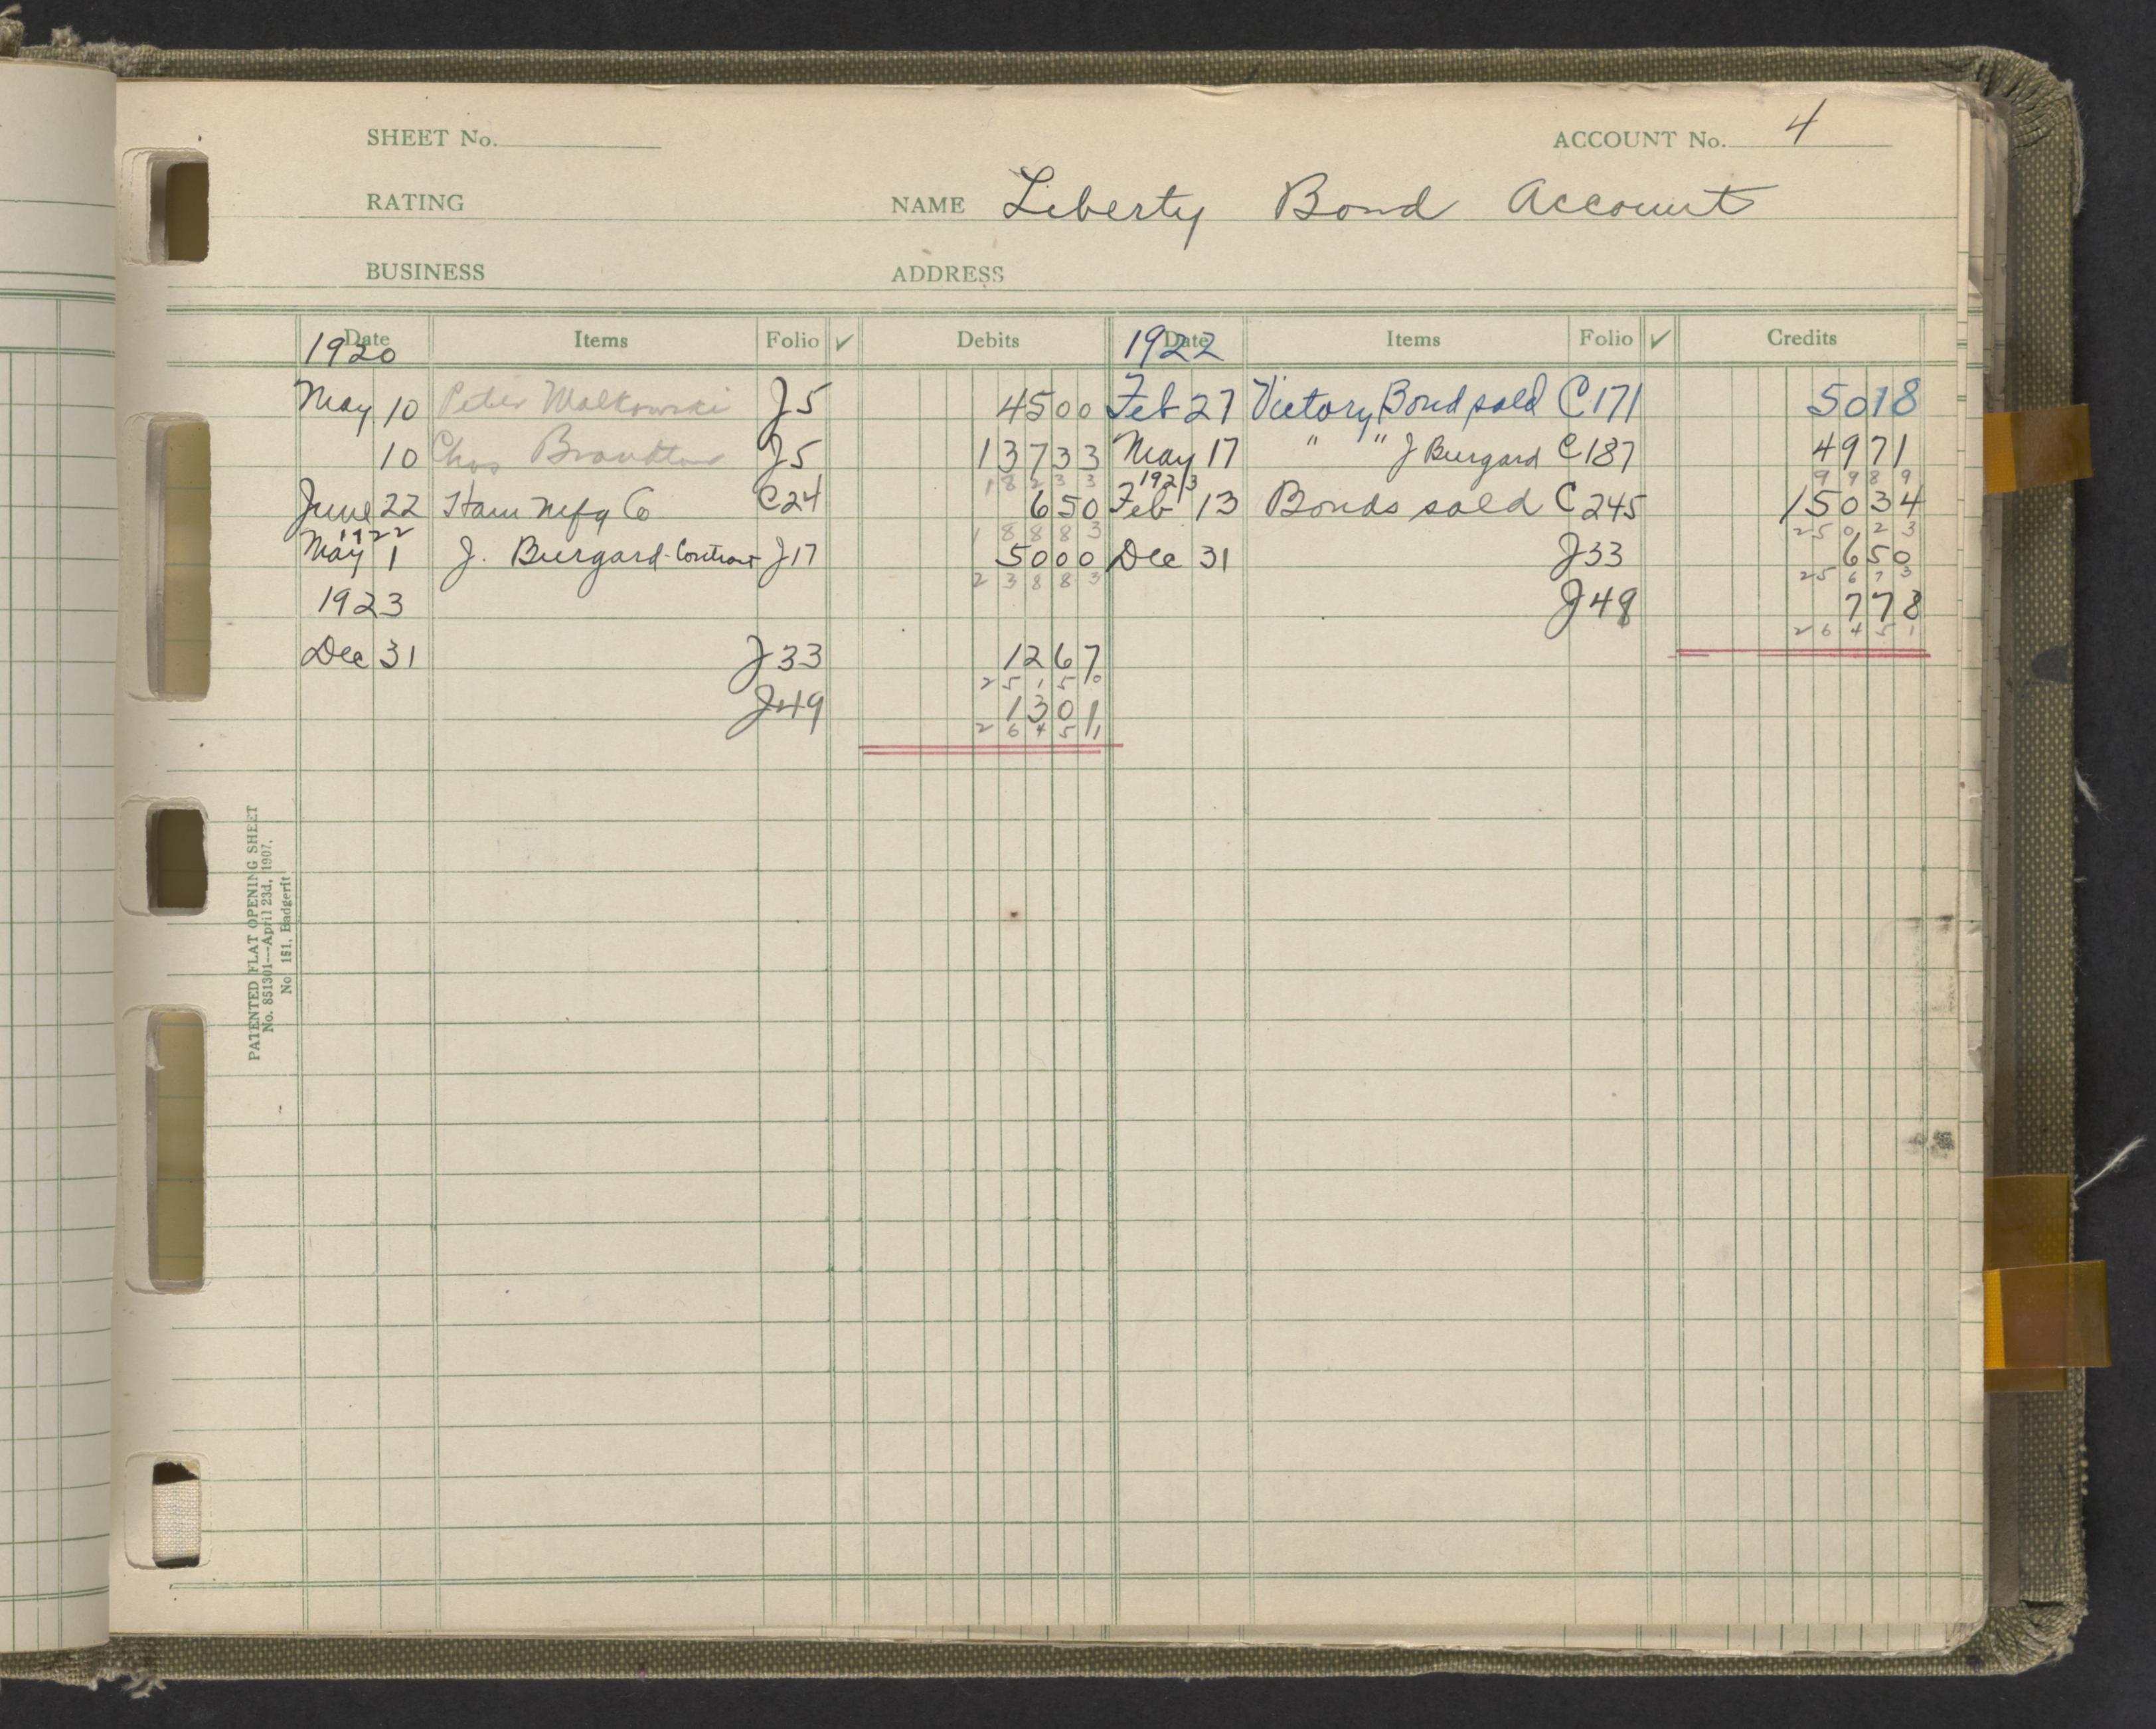 SHEET No. ACCOUNT No. 4
RATING NAME Liberty Bond Account
BUSINESS ADDRESS
Date Items Folio ✓ Debits Date Items Folio ✓ Credits
1920 1922
May 10 Peter Malkowski J5 4500 Feb 27 Victory Bond sold C171 5018
10 Chas J5 13733 May 17 " " J Burgard C187 4971
18233 1923 9989
June 22 Ham Mfg Co C24 650 Feb 13 Bonds sold C245 15034
1922 18883 25023
May 1 J. Burgard-Contract J17 5000 Dec 31 J33 650
23883 25673
1923 J49 778
26451
Dec 31 J33 1267
25150
J49 1301
26451
PATENTED FLAT OPENING SHEET
No. 851301—April 23d, 1907.
No 151, Badgerit